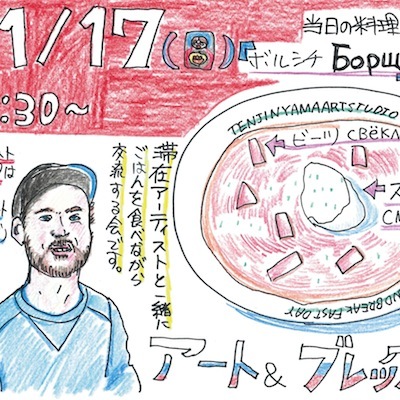 1/17(日)
:30～
当日の料理
ボルシチ Борщ
TENJINYAMA ART STUDIO
ビーツ СВЁКЛ
ス
СМ
滞在アーティストと一緒に
ごはんを食べながら
交流する会です。
アート & ブレック